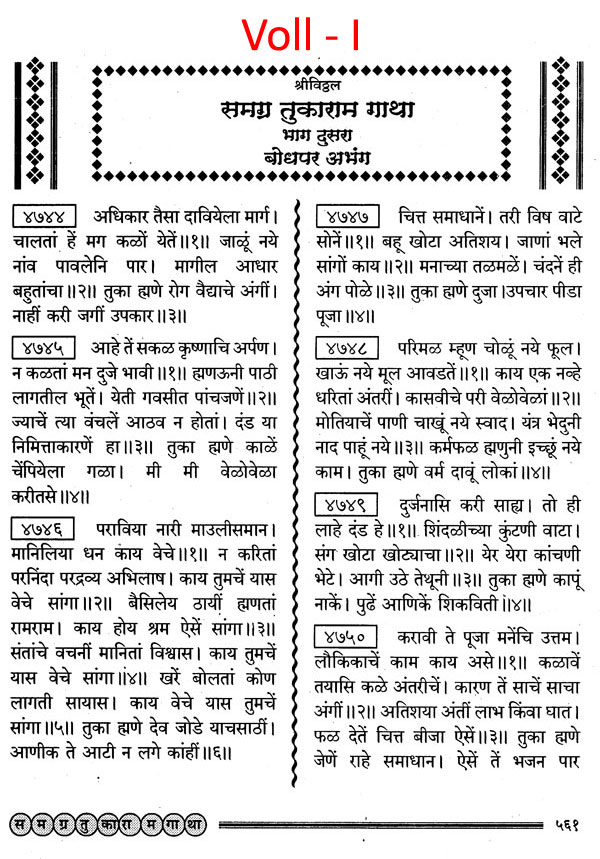 Voll - I
श्रीविठ्ठल
समग्र तुकाराम गाथा
भाग दुसरा
बोधपर अभंग
४७४४ अधिकार तैसा दावियेला मार्ग।
चालतां हें मग कळों येतें॥१॥ जाळूं नये
नांव पावलेनि पार। मागील आधार
बहुतांचा॥२॥ तुका ह्मणे रोग वैद्याचे अंगीं।
नाहीं करी जगीं उपकार॥३॥
४७४५ आहे तें सकळ कृष्णाचि अर्पण।
न कळतां मन दुजे भावी॥१॥ ह्मणऊनी पाठी
लागतील भूतें। येती गवसीत पांचजणें॥२॥
ज्याचें त्या वंचलें आठव न होतां। दंड या
निमित्ताकारणें हा॥३॥ तुका ह्मणे काळें
चेंपियेला गळा। मी मी वेळोवेळा
करीतसे॥४॥
४७४६ पराविया नारी माउलीसमान।
मानिलिया धन काय वेचे॥१॥ न करितां
परनिंदा परद्रव्य अभिलाष। काय तुमचें यास
वेचे सांगा॥२॥ बैसिलेय ठायीं ह्मणतां
रामराम। काय होय श्रम ऐसें सांगा॥३॥
संतांचे वचनीं मानितां विश्वास। काय तुमचें
यास वेचे सांगा॥४॥ खरें बोलतां कोण
लागती सायास। काय वेचे यास तुमचें
सांगा॥५॥ तुका ह्मणे देव जोडे याचसाठीं।
आणीक ते आटी न लगे कांहीं॥६॥
४७४७ चित्त समाधानें। तरी विष वाटे
सोनें॥१॥ बहू खोटा अतिशय। जाणां भले
सांगों काय॥२॥ मनाच्या तळमळें। चंदनें ही
अंग पोळे॥३॥ तुका ह्मणे दुजा।उपचार पीडा
पूजा॥४॥
४७४८ परिमळ म्हूण चोळूं नये फूल।
खाऊं नये मूल आवडतें॥१॥ काय एक नव्हे
धरितां अंतरीं। कासवीचे परी वेळोवेळां॥२॥
मोतियाचें पाणी चाखूं नये स्वाद। यंत्र भेदुनी
नाद पाहूं नये॥३॥ कर्मफळ ह्मणुनी इच्छूं नये
काम। तुका ह्मणे वर्म दावूं लोकां॥४॥
४७४९ दुर्जनासि करी साह्य। तो ही
लाहे दंड हे॥१॥ शिंदळीच्या कुंटणी वाटा।
संग खोटा खोट्याचा॥२॥ येर येरा कांचणी
भेटे। आगी उठे तेथूनी॥३॥ तुका ह्मणे कापूं
नाकें। पुढें आणिकें शिकविती॥४॥
४७५० करावी ते पूजा मनेंचि उत्तम।
लौकिकाचें काम काय असे॥१॥ कळावें
तयासि कळे अंतरीचें। कारण तें साचें साचा
अंगीं॥२॥ अतिशया अंतीं लाभ किंवा घात।
फळ देतें चित्त बीजा ऐसें॥३॥ तुका ह्मणे
जेणें राहे समाधान। ऐसें तें भजन पार
स म ग्र तु का रा म गा था
५६१